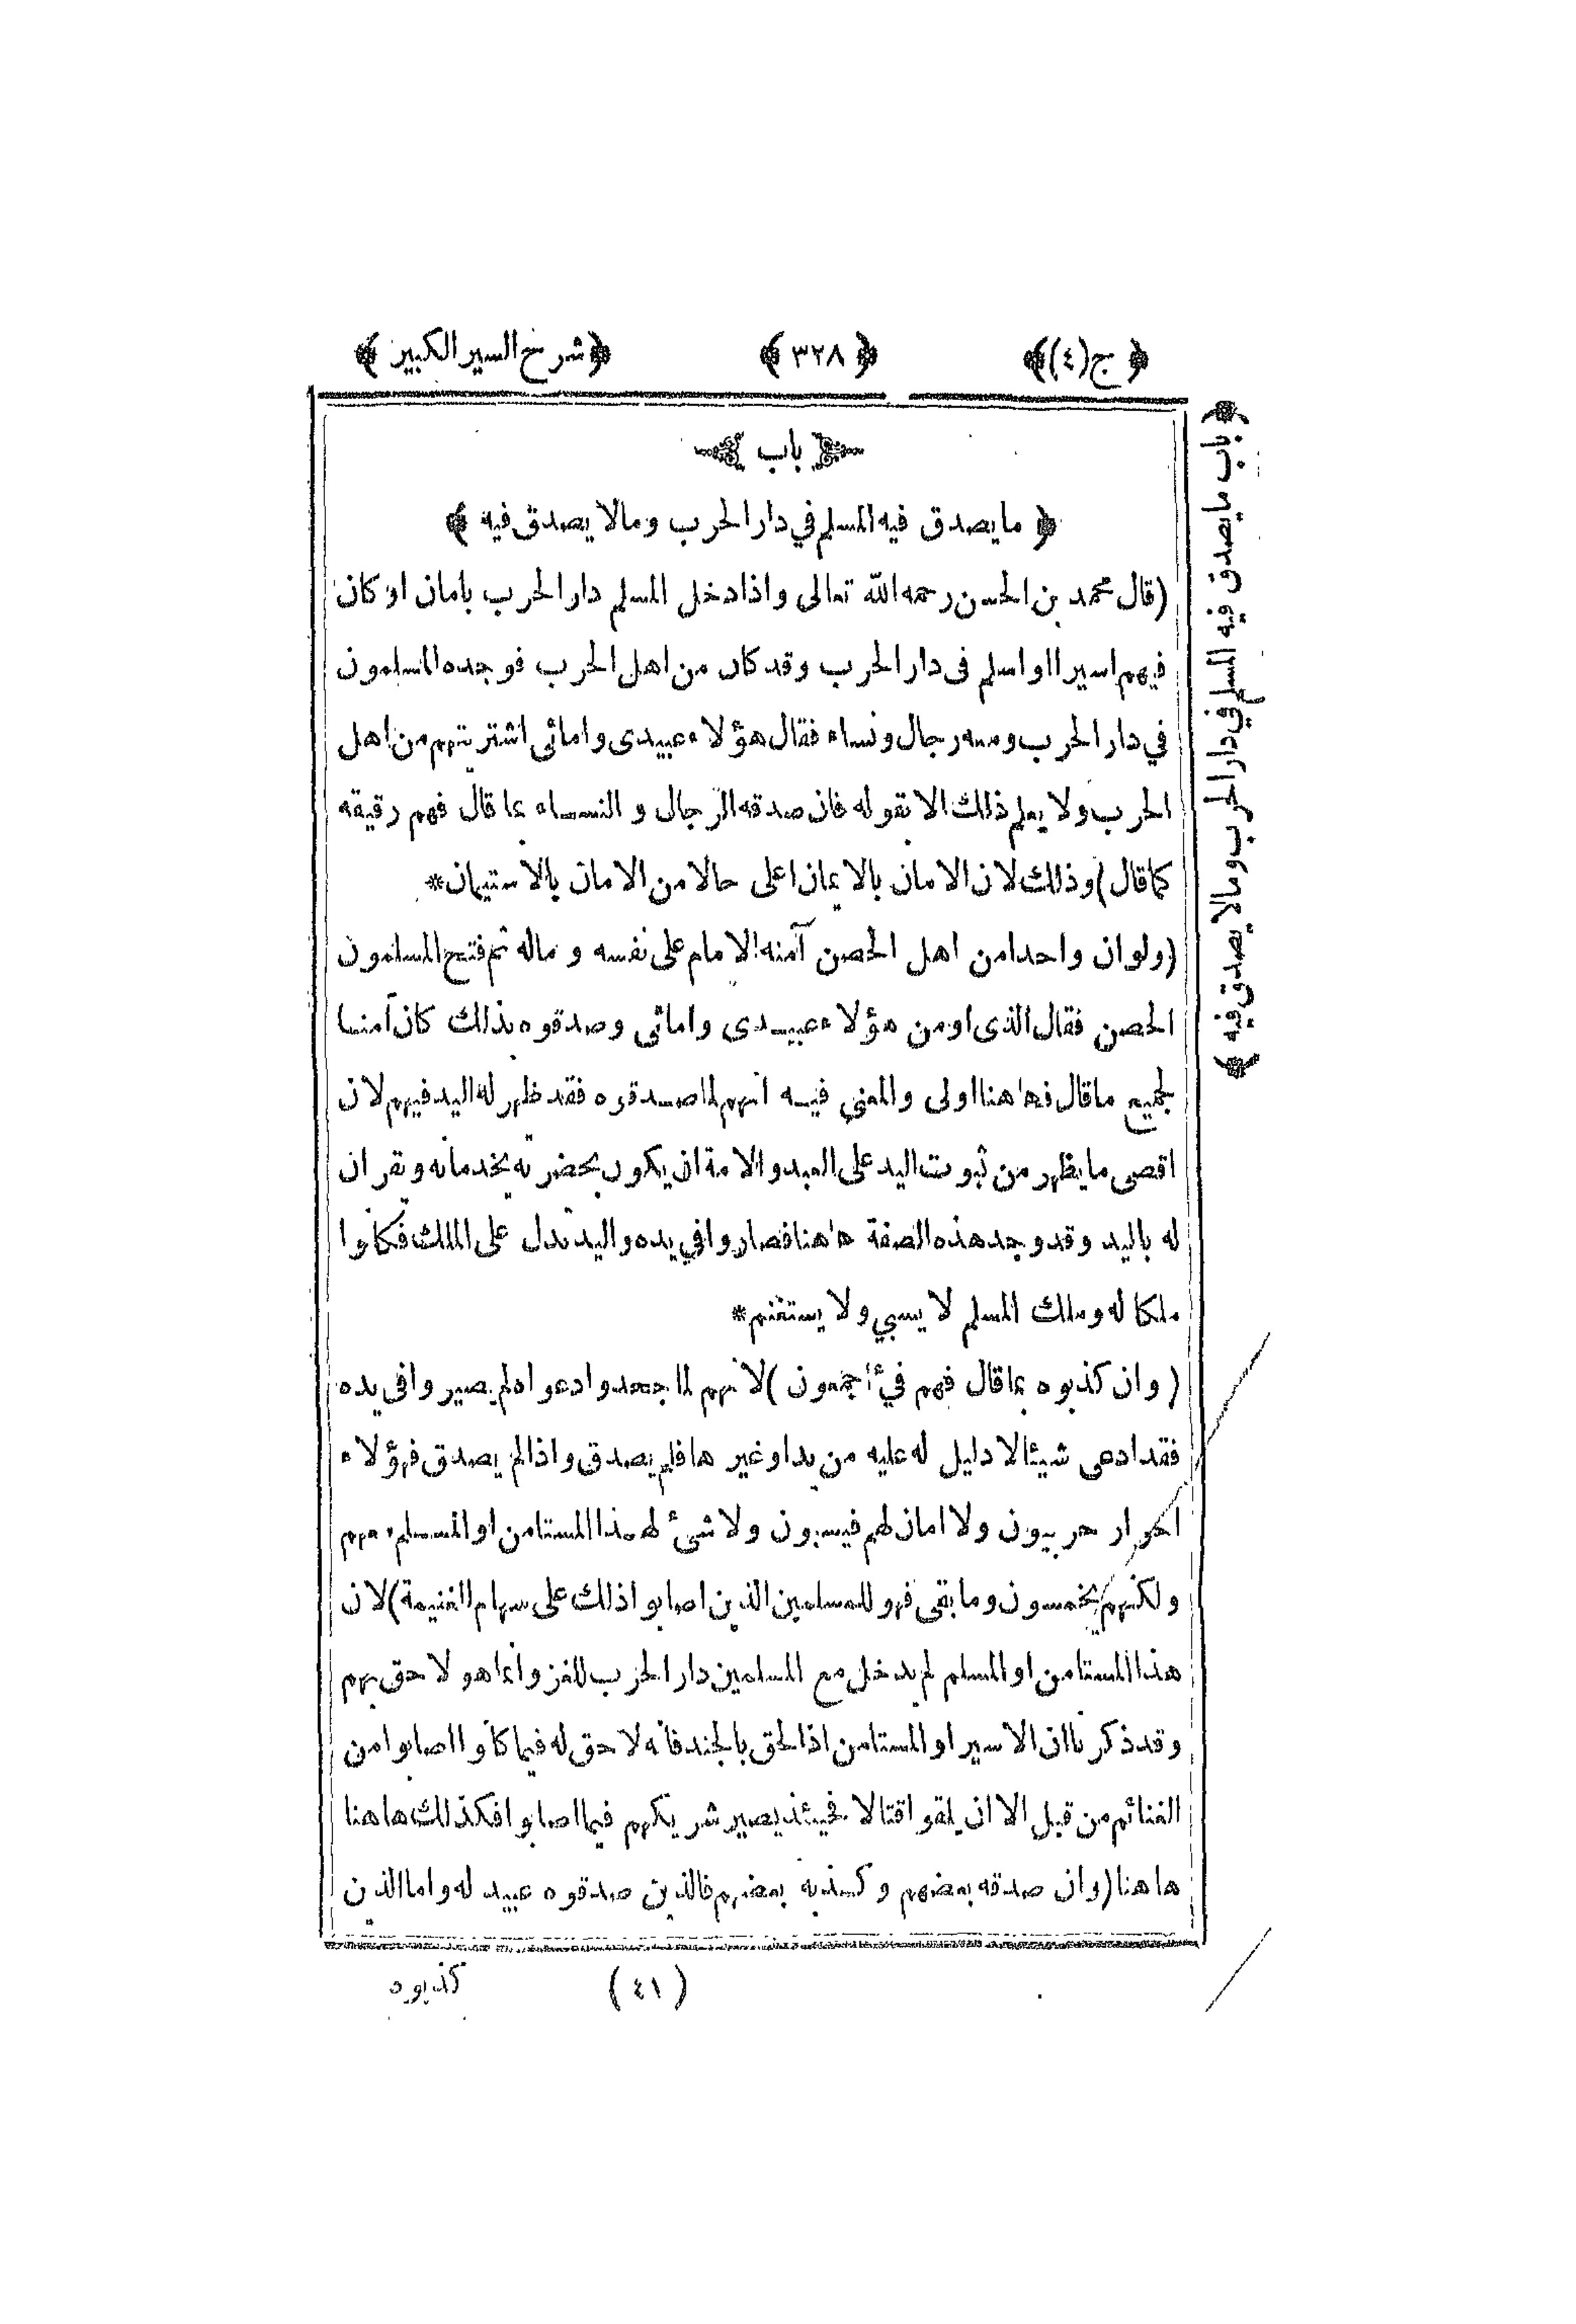 ﴿ ج(٤) ﴾ ﴿ ٣٢٨ ﴾ ﴿ شرح السير الكبير ﴾
باب
﴿ ما يصدق فيه المسلم في دار الحرب ومالا يصدق فيه ﴾
(قال محمد بن الحسن رحمه الله تعالى واذا دخل المسلم دار الحرب بامان او كان
فيهم اسيرا او اسلم فى دار الحرب وقد كان من اهل الحرب فوجده المسلمون
في دار الحرب ومعه رجال ونساء فقال هؤلاء عبيدى وامائى اشتريتهم من اهل
الحرب ولا يعلم ذلك الا بقوله فان صدقه الرجال و النساء بما قال فهم رقيقه
كما قال) وذلك لان الامان بالايمان اعلى حالا من الامان بالاستيمان*
(ولو ان واحدا من اهل الحصن آمنه الامام على نفسه و ماله ثم فتح المسلمون
الحصن فقال الذى اومن هؤلاء عبيدى وامائى وصدقوه بذلك كان آمنا
بجميع ما قال فهاهنا اولى والمعنى فيه انهم لما صدقوه فقد ظهر له اليد فيهم لان
اقصى ما يظهر من ثبوت اليد على العبد والامة ان يكون بحضرته يخدمانه ويقران
له باليد وقد وجد هذه الصفة هاهنا فصاروا في يده واليد تدل على الملك فكانوا
ملكا له وملك المسلم لا يسبي ولا يستغنم*
(وان كذبوه بما قال فهم فيء اجمعون) لانهم لما جحدوا دعواه لم يصيروا فى يده
فقد ادعى شيئا لا دليل له عليه من يد او غيرها فلم يصدق واذا لم يصدق فهؤلاء
احرار حربيون ولا امان لهم فيسبون ولا شئ لهذا المستامن او المسلم معهم
ولكنهم يخمسون وما بقى فهو للمسلمين الذين اصابوا ذلك على سهام الغنيمة) لان
هذا المستامن او المسلم لم يدخل مع المسلمين دار الحرب للغزو وانما هو لاحق بهم
وقد ذكرنا ان الاسير او المستامن اذا لحق بالجند فانه لا حق له فيما كانوا اصابوا من
الغنائم من قبل الا ان يلقوا قتالا فحينئذ يصير شريكهم فيما اصابوا فكذلك هاهنا
هاهنا (وان صدقه بعضهم وكذبه بعضهم فالذين صدقوه عبيد له واما الذين
(٤١) كذبوه
﴿ باب ما يصدق فيه المسلم في دار الحرب ومالا يصدق فيه ﴾